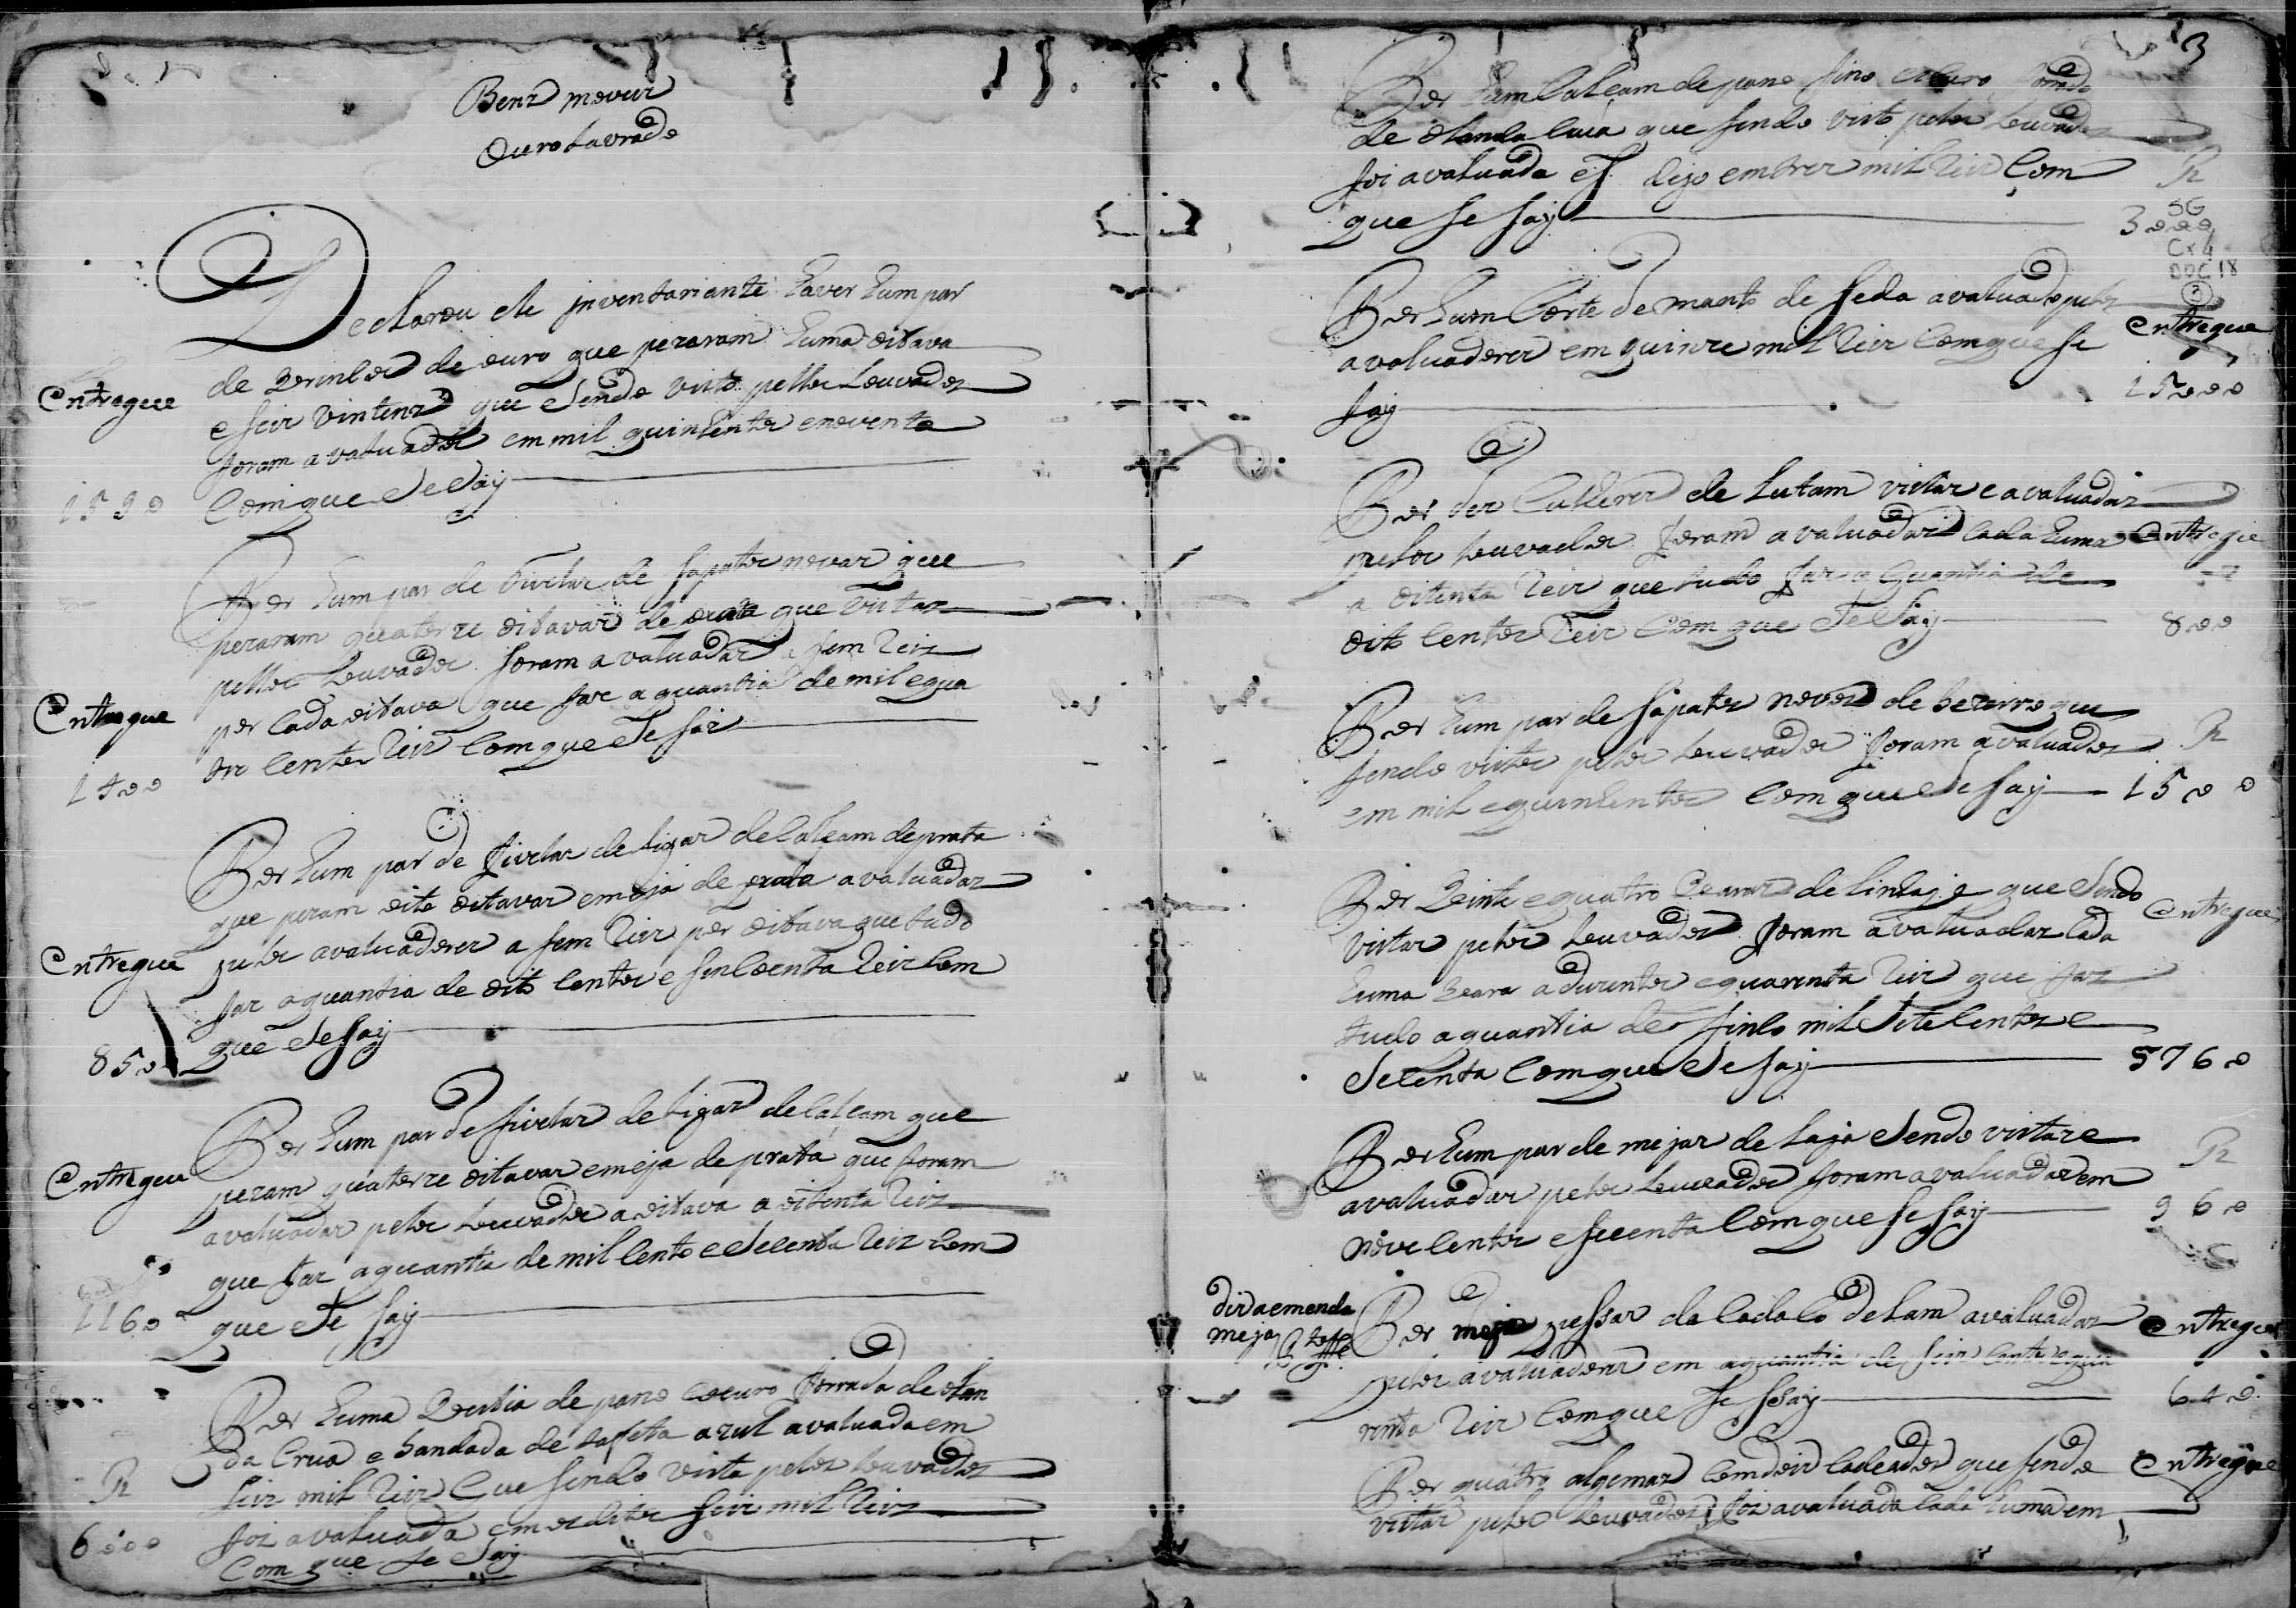 Benz moveis
Ouro Lavrado
Declarou ele inventariante haver hum par
de Brincos de ouro que pezaram huma oitava
e seis vintenz que sendo visto pellos Louvados
foram avaluados em mil quinhentos e noventa
Com que se say
Entregue
1590
Por hum par de fivelas de sapatos novas que
pezaram quatorze oitavas de prata que vistas
pellos Louvados foram avaluadas a sem reis
por cada oitava que faz a quantia de mil e qua
tro centos reis Com que se sai
Entregue
1400
Por hum par de fivelas de ligas de calçam de prata
que pezam oito oitavas e meja de prata avaluadas
pelos avaluadores a sem reis por oitava que tudo
faz a quantia de oito centos e sincoenta reis Com
que se say
Entregue
850
Por hum par de fivelas de ligas de calçam que
pezam quatorze oitavas e meja de prata que foram
avaluadas pelos Louvados a oitava a oitenta reis
que faz a quantia de mil cento e secenta reis Com
que se say
Entregue
1160
Por huma Vestia de pano escuro forrada de olan
da Crua e bandada de tafeta azul avaluada em
seis mil reis Que sendo vista pelos Louvados
foi avaluada em os ditos seis mil reis
Com que se say
R
6000
3
Por hum Calçam de pano fino escuro forrado
de olanda Crua que sendo visto pelos Louvados
foi avaluada em tres mil reis Com
que se say
R
3000
SG
Cx 4
DOC 18
2
Por hum Corte de manto de seda avaluado pelos
avaluadores em quinze mil reis Com que se
say
Entregue
15000
Por des Culheres de Latam vistas e avaluadas
pelos Louvados foram avaluadas cada huma
a oitenta reis que tudo faz a quantia de
oito centos reis Com que se say
Entregue
800
Por hum par de sapatos novos de bezerro que
sendo vistos pelos Louvados foram avaluados
em mil e quinhentos Com que se say
R
1500
Por Vinte e quatro Varas de linhaje que sendo
vistas pelos Louvados foram avaluadas cada
huma Vara a duzentos e quarenta reis que faz
tudo a quantia de sinco mil sete centos e
secenta Com que se say
Entregue
5760
Por hum par de mejas de Laja sendo vistas e
avaluadas pelos Louvados foram avaluadas em
nove centos e secenta Com que se say
R
960
dis a emenda
meja
Por meja pessas de Cadaço de Lam avaluadas
pelos avaluadores em a quantia de seis centos e qua
renta reis Com que se say
Entregue
640
Por quatro algemas Com dois Cadeados que sendo
vistas pelos Louvados foi avaluada cada huma em
Entregue